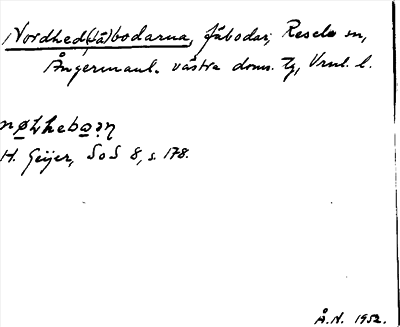 Nordhed(så)bodarna, fäbodar; Resele sn,
Ångermanl. västra doms. tg, Vrnl. l.
H. Geijer, SoS 8, s. 178.
Å.N. 1952.